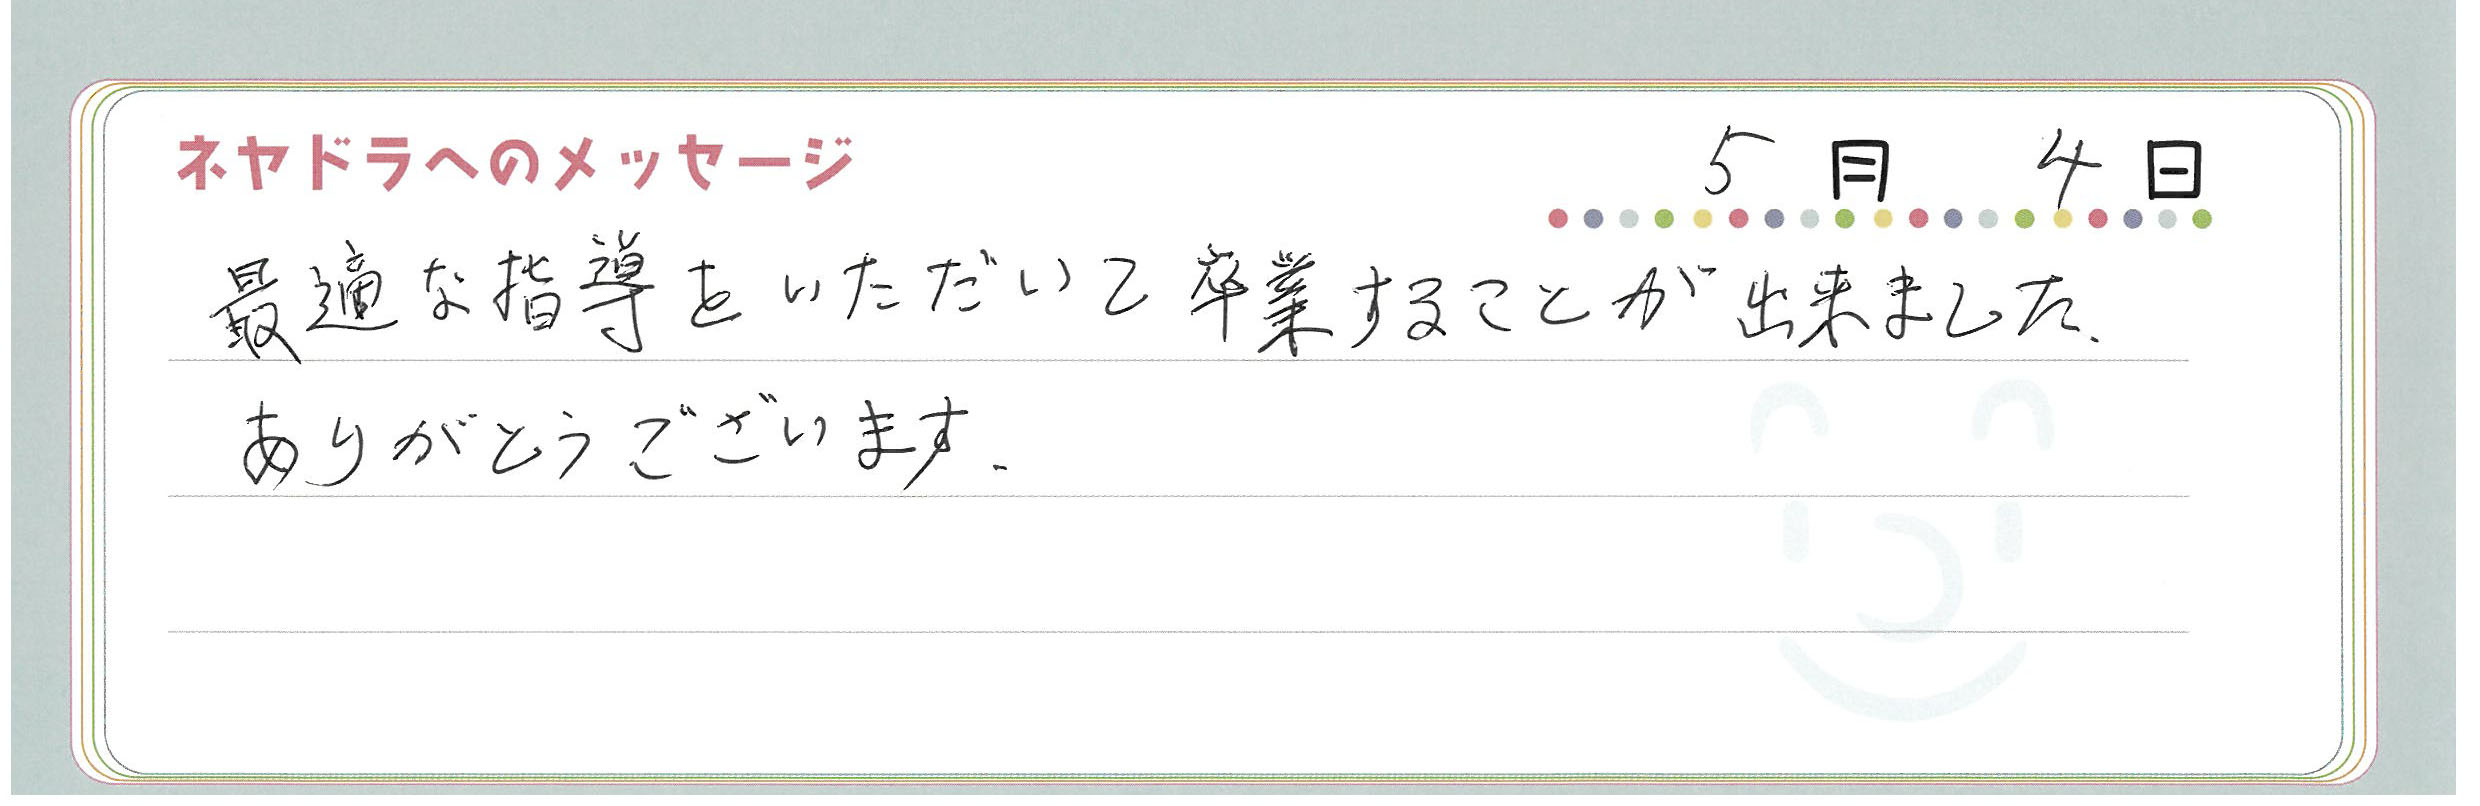 ネヤドラへのメッセージ 5月 4日
最適な指導をいただいて卒業することが出来ました.
ありがとうございます.